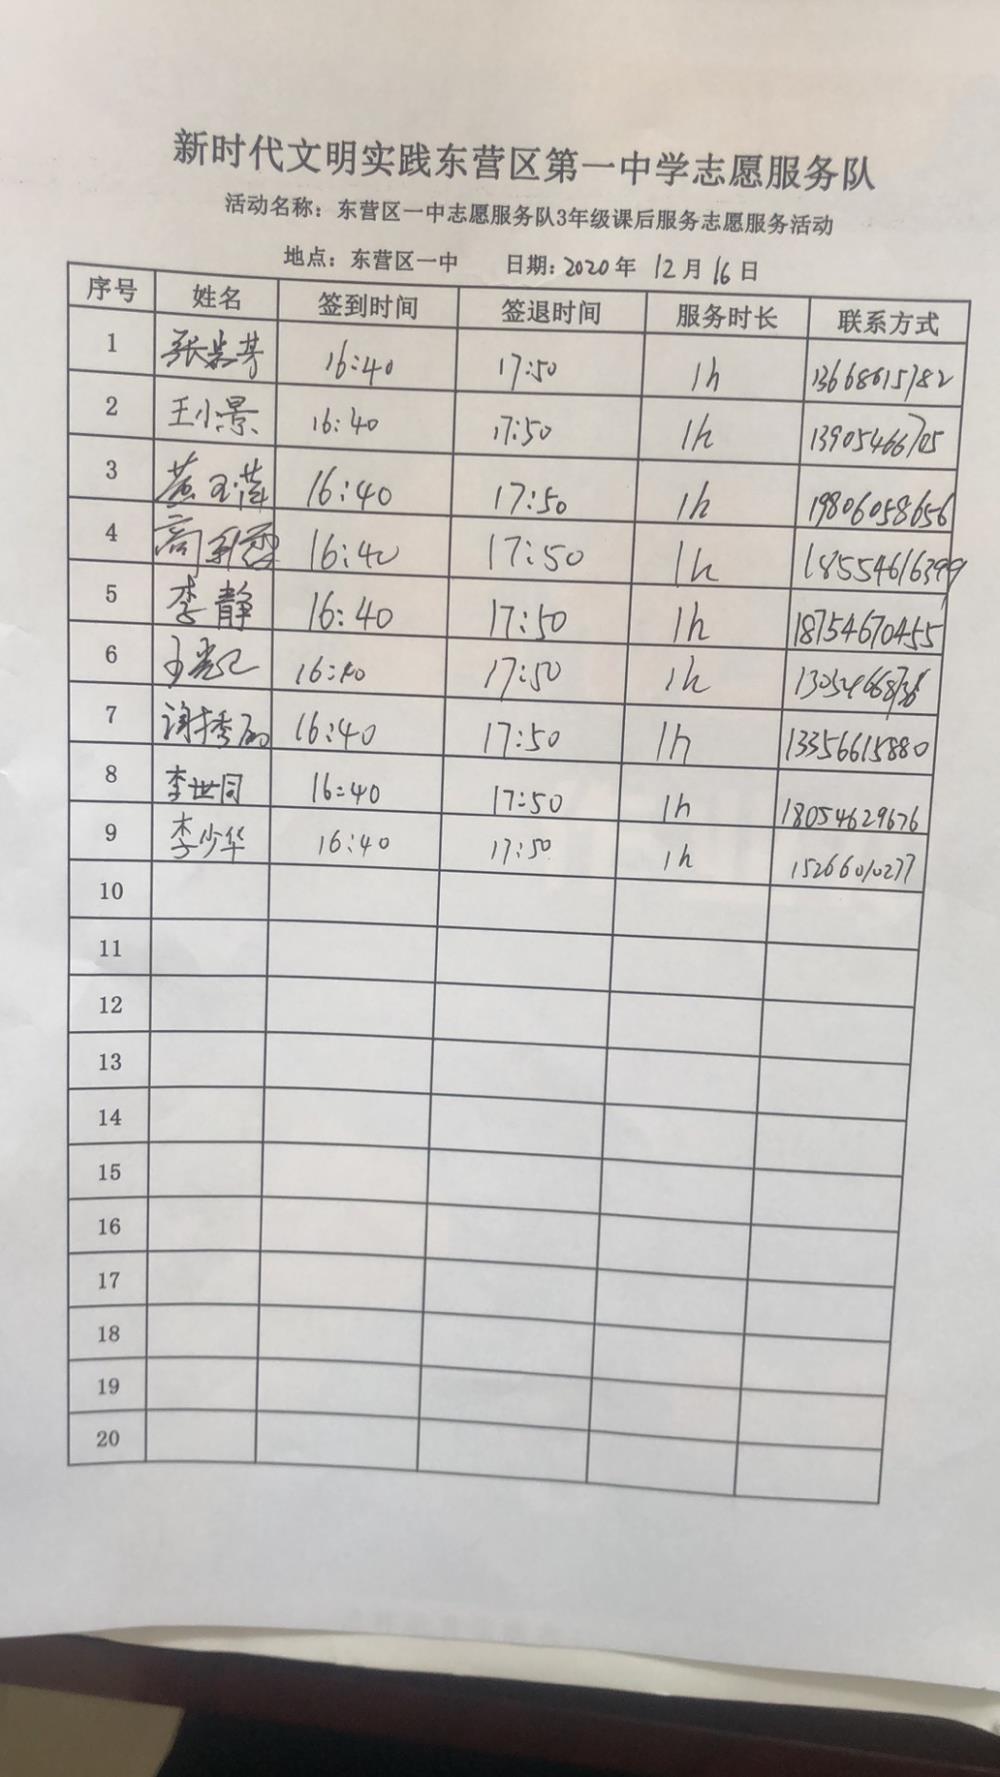 新时代文明实践东营区第一中学志愿服务队
活动名称：东营区一中志愿服务队3年级课后服务志愿服务活动
地点：东营区一中 日期：2020年 12月16日
序号 姓名 签到时间 签退时间 服务时长 联系方式
1 16:40 17:50 1h 13668615782
2 王小景 16:40 17:50 1h 13905466705
3 16:40 17:50 1h 19806058656
4 16:40 17:50 1h 18554616399
5 李静 16:40 17:50 1h 18754670455
6 16:40 17:50 1h
7 16:40 17:50 1h 13356615880
8 李世同 16:40 17:50 1h 18054629676
9 李少华 16:40 17:50 1h 15266010277
10
11
12
13
14
15
16
17
18
19
20